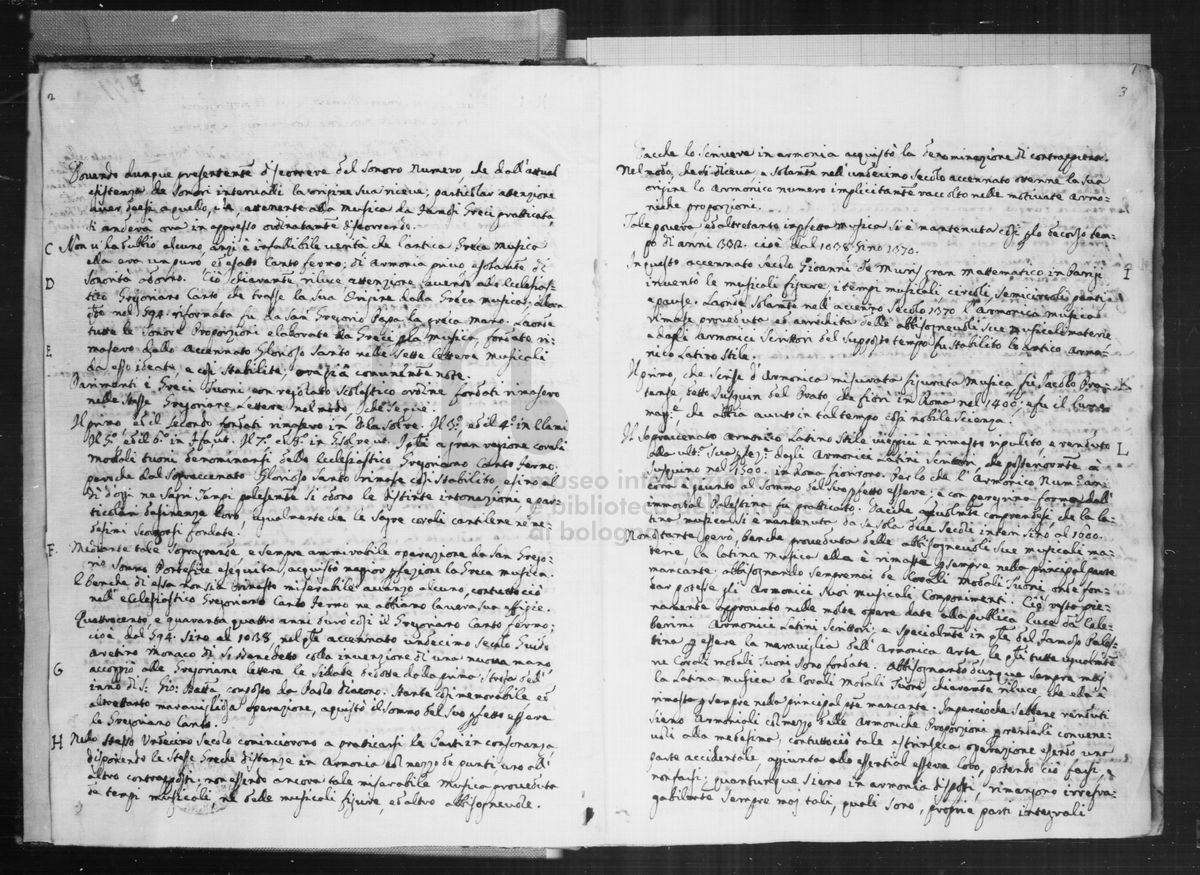 2
Dovendo dunque presentemte discorrere del Sonoro Numero, che dall'actual
esistenza de Sonori intervalli la origine sua riceve; particolar attenzione
aver deesi a quello, ch'è attenente alla Musica da Famosi Greci pratticata,
di cui deva ora in appresso ordinatamte discorrendo.
C Non v'ha dubbio alcuno, anzi è infallibile verità che l'antica Greca Musica
ella era un puro ed esatto Canto fermo; di Armonia privo, e solamte di
Sonorità adorno. Ciò chiaramte riluce attenzione avendo allo Ecclesias-
D tico Gregoriano Canto che trasse la sua Origine dalla Greca musica, allora
che nel 594. riformata fu da San Gregorio Papa la greca mano. Laonde
tutte le Sonore Proporzioni elaborate da Greci p la Musica, fondate ri-
E masero dallo accennato Glorioso Santo nelle Sette lettere Musicali
da esso ideate, e così stabilite, ora già comunemte note.
Parimenti i Greci Tuoni con regolato Scolastico ordine fondati rimasero
nelle stesse Gregoriane Lettere nel modo, che segue.
Il primo ed il Secondo fondati rimasero in D la Solre. Il 3º. ed il 4º. in Elami
Il 5º. ed il 6º. in Ffaut. Il 7º. ed 8º. in Gsolreut. I qli a gran ragione corali
modali tuoni denominansi dello Ecclesiastico Gregoriano Canto fermo,
perche dal Sopraccenato Glorioso Santo rimase così stabilito, e sino al
dì d'oggi ne Sagri Tempi palesemte si odono le distinte intonazioni, e par-
ticolari desinenze loro, egualmente che le Sagre corali cantilene ne me-
desimi Tuoni fondate.
F. Mediante tale Sopragrande e sempre ammirabile operazione da San Grego-
rio Sommo Pontefice eseguita, acquistò magior pfezione la Greca musica.
E benche di essa non sia rimasto miserabile avanzo alcuno, contuttociò
nell'Ecclesiastico Gregoriano Canto Fermo ne abbiamo la vera sua effigie.
Quattrocento, e quaranta quattro anni durò così il Gregoriano Canto fermo;
cioè dal 594. sino al 1038 nel qle accennato undecimo Secolo Guido
Aretino Monaco di S. Benedetto colla invenzione di una nuova mano
G accoppiò alle Gregoriane lettere le Sillabe dedotte dalla prima Strofa dell'
inno di S. Gio: Batta, composto da Paolo Diacono. Stante così memorabile ed
altrettanto maravigliosa operazione, aquistò il Sommo del suo pfetto essere
lo Gregoriano Canto.
H Nello stesso Undecimo Secolo cominciorono a praticarsi le Parti in consonanza
disponendo le Stesse Greche distanze in Armonia col mezzo de punti, uno all'
altro contrapposti; non essendo ancora tale miserabile Musica proveduta
de tempi musicali, ne delle musicali figure, ed altro abbisognevole.
3
Dacche lo scrivere in armonia acquistò la denominazione di contrappunto.
Nel modo, che si diceva, e solamte nell'undecimo Secolo accennato ottenne la sua
origine lo Armonico numero implicitamte raccolto nelle motivate Armo-
niche proporzioni.
Tale povera ed altretanto impfetta Musica si è mantenuta così p lo decorso tem-
po di anni 332. cioè dal 1038 sino 1370.
I In questo accennato Secolo Gioanni de Muris gran mattematico in Parigi
inventò le musicali figure; i tempi musicali circoli, semicircoli, punti
e pause. Laonde solamte nell'accento Secolo 1370 l'Armonica Musica
rimase proveduta ed arrichita delle abbisognevoli sue musicali materie
e dagli Armonici Scrittori del supposto tempo fu stabilito lo antico Armo-
nico Latino Stile.
K Il primo, che scrisse d'Armonica misurata figurata Musica fu Jacobo Pra-
tense, detto Jusquin del Prato che fiorì in Roma nel 1400; e fu il
mage che abbia avuto in tal tempo così nobile scienza.
L Il Sopraccenato Armonico Latino Stile vieppiù è rimasto ripulito, e renduto
alla ult. sua pfez. dagli Armonici Latini Scrittori, che posteriormte a
Jusquino nel 1500. in Roma fiorirono. Per lo che l'Armonico Numº armº
come è giunto al sommo del suo pfetto essere; è con peregrina forma dall'
immortal Palestrina fu pratticato. Dacche agevolmte comprendesi, che la la-
tina musica si è mantenuta da se sola due Secoli intieri sino al 1600.
Nonostante però, benche proveduta delle abbisognevoli sue musicali ma-
terie, la latina musica ella è rimasta p sempre nella principal parte
mancante; abbisognando sempremai de Corali Modali Tuoni onde fon-
dar potesse gli Armonici suoi musicali componimenti. Ciò resta pie-
namente approvato nelle molte opere date alla publica luce da Cele-
berrimi Armonici Latini Scrittori; e specialmte in qlle del Famoso Pales-
trina p essere la maraviglia dell'Armonica Arte, le qli tutte ugualmte
ne Corali modali Tuoni sono fondate. Abbisognando dunque sempre maj
la Latina musica de Corali Modali Tuoni chiaramte riluce, che ella è
rimasta p sempre nella principal pte mancante. Impercioche sebbene renduti
sieno Armoniali col mezzo delle Armoniche Proporzioni p rendali convene-
voli alla medesima, contuttociò tale estrinseca operazione essendo una
parte accidentale, aggiunta allo essential essere loro, potendo ciò farsi, e
non farsi; quantunque sieno in armonia disposti, rimangono irrefra-
gabilmte sempre maj tali, quali sono, proprie parti integrali
museo internazionale
e biblioteca della musica
di bologna